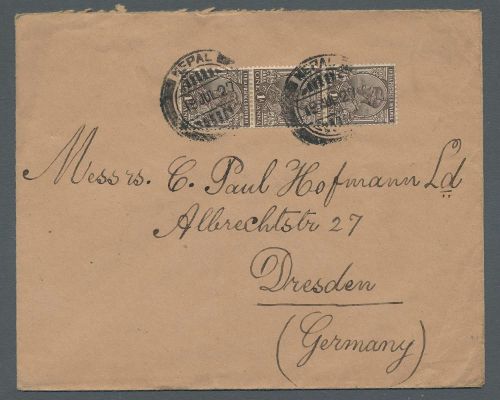 NEPAL NEPAL
12 JUL 27
Messrs. C. Paul Hofmann Ld
Albrechtstr 27
Dresden
(Germany)